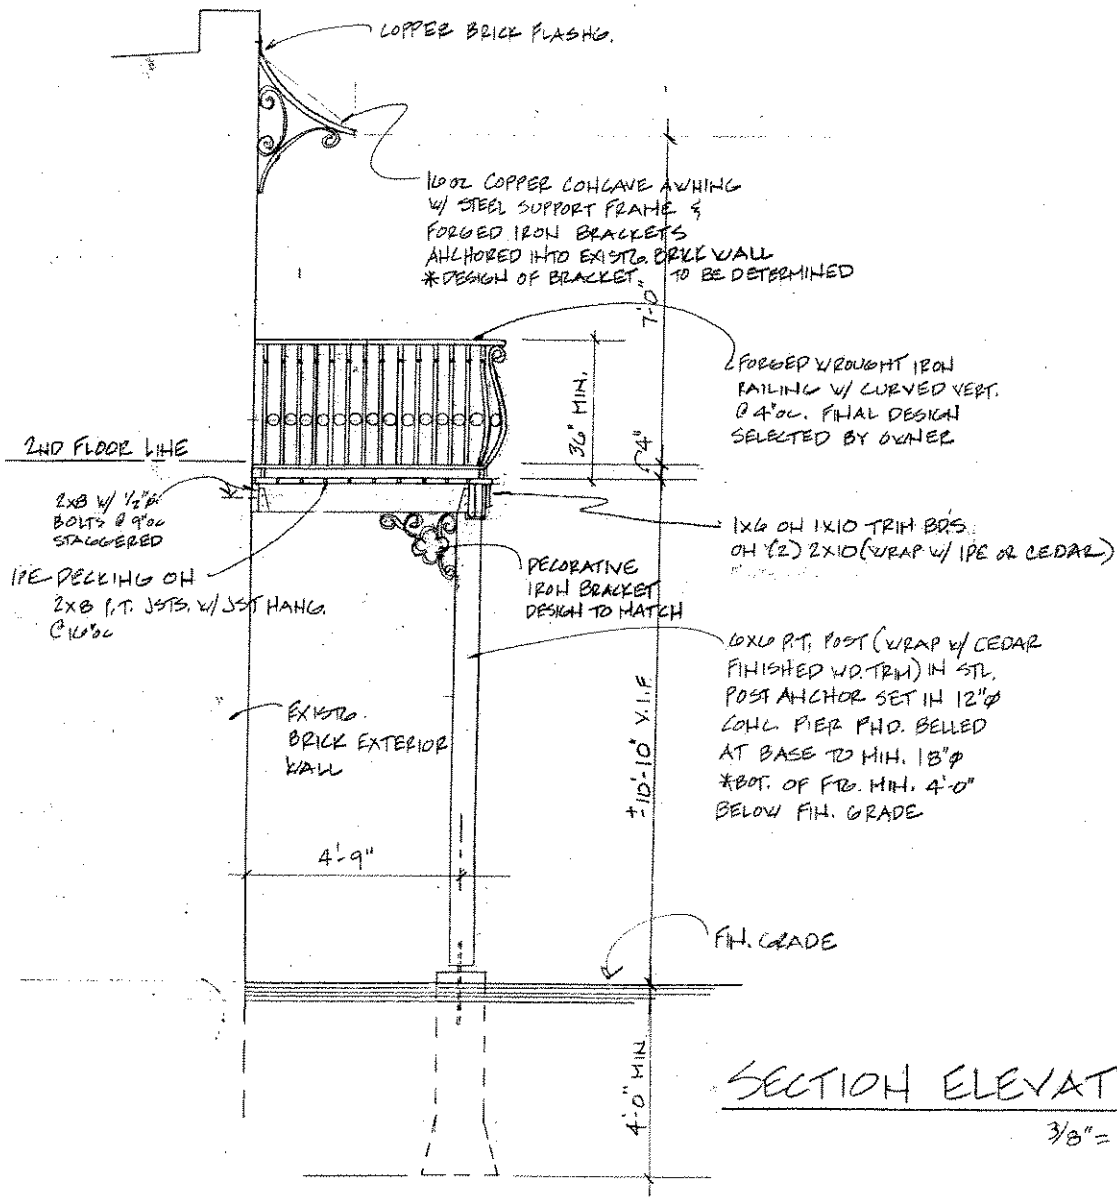 COPPER BRICK FLASHG.
16 OZ COPPER CONCAVE AWNING
W/ STEEL SUPPORT FRAME &
FORGED IRON BRACKETS
ANCHORED INTO EXIST'G. BRICK WALL
*DESIGN OF BRACKET TO BE DETERMINED
7'-0"
FORGED WROUGHT IRON
RAILING W/ CURVED VERT.
@ 4"OC. FINAL DESIGN
SELECTED BY OWNER
36" MIN.
4"
2ND FLOOR LINE
2X8 W/ 1/2"Ø
BOLTS @ 9"OC
STAGGERED
IPE DECKING ON
2X8 P.T. JSTS. W/ JST HANG.
@ 16"OC
1X6 ON 1X10 TRIM BDS.
ON (2) 2X10 (WRAP W/ IPE OR CEDAR)
DECORATIVE
IRON BRACKET
DESIGN TO MATCH
6X6 P.T. POST (WRAP W/ CEDAR
FINISHED WD. TRIM) IN STL.
POST ANCHOR SET IN 12"Ø
CONC. PIER FND. BELLED
AT BASE TO MIN. 18"Ø
*BOT. OF FTG. MIN. 4'-0"
BELOW FIN. GRADE
EXIST'G.
BRICK EXTERIOR
WALL
±10'-10" V.I.F.
4'-9"
FIN. GRADE
4'-0" MIN.
SECTION ELEVAT
3/8"=